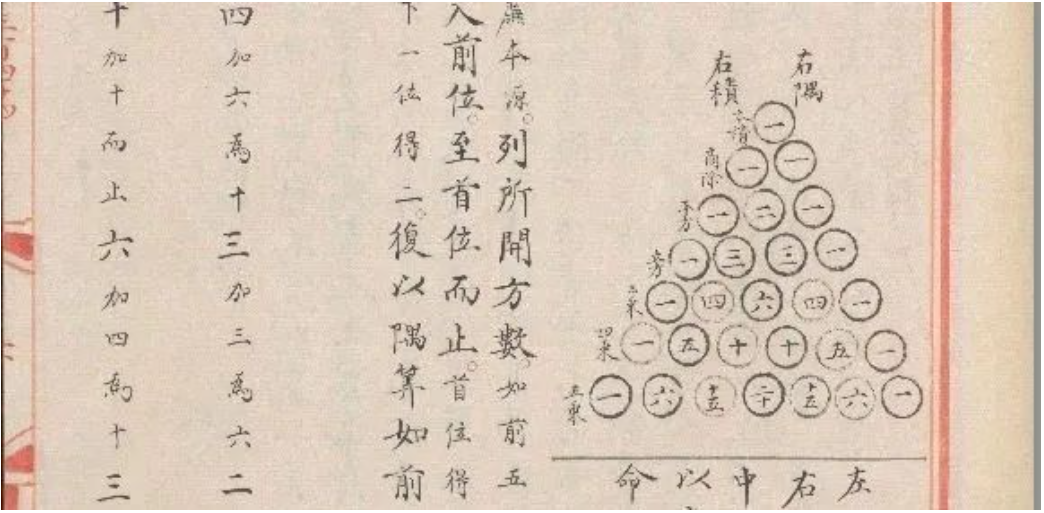 右隅
右積
一
一 一
商除
一 二 一
平方
一 三 三 一
一 四 六 四 一
三乘
一 五 十 十 五 一
四乘
一 六 十五 二十 十五 六 一
五乘
左
右
中
以
命
本源。列所開方數。如前五
入前位。至首位而止。首位得
下一位得二。復以隅算如前
四加六為十三加三為六二
十加十而止六加四為十三